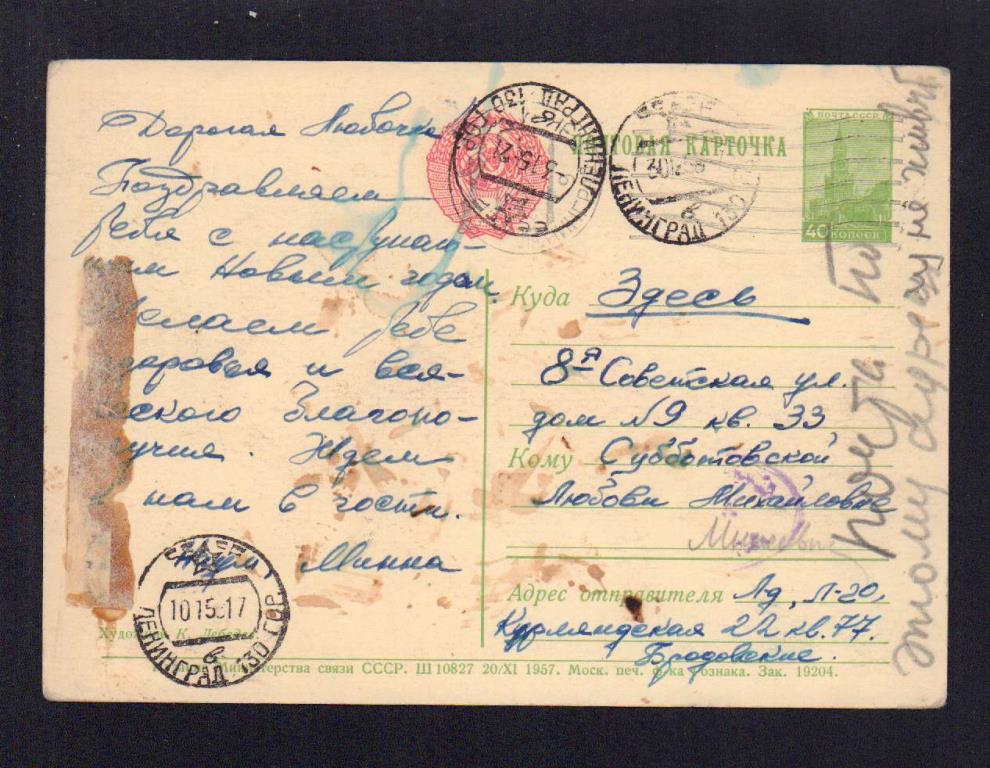 Дорогая Любочка
Поздравляем
тебя с наступаю-
м Новым годом.
елаем тебе
доровья и вся-
ского благопо-
учия. Ждем
нам в гости.
Минна
Художник К. Лебедев.
ПОЧТОВАЯ КАРТОЧКА
ПОЧТА СССР
40 КОПЕЕК
Куда Здесь
8-я Советская ул.
дом №9 кв. 33
Кому Субботовской
Любови Михайловне
Адрес отправителя Лд, Л-20,
Курляндская 22 кв. 77.
Бродовские.
Министерства связи СССР. Ш 10827 20/XI 1957. Моск. печ. ф-ка Гознака. Зак. 19204.
СССР
ЛЕНИНГРАД 130 ГОР
ЛЕНИНГРАД 130
ЛЕНИНГРАД 130 ГОР
10 1 5 17
почта По
этому адресу не живет